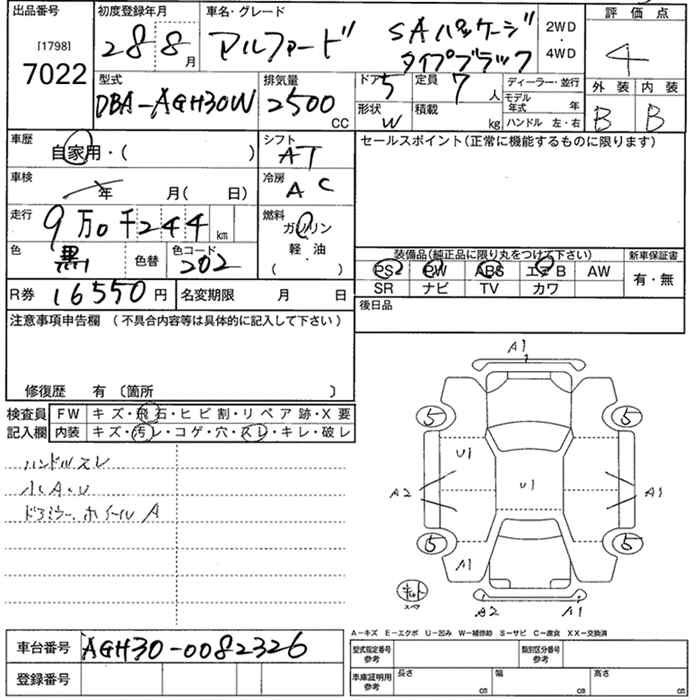 出品番号
[1798]
7022
初度登録年月
28 8月
車名・グレード
アルファード SAパッケージ
タイプブラック
2WD
・
4WD
評価点
4
外装 内装
B B
型式
DBA-AGH30W
排気量
2500 CC
ドア 5
定員 7人
形状 W
積載 kg
ディーラー・並行
モデル年式 年
ハンドル 左・右
車歴
自家用・( )
シフト
AT
セールスポイント(正常に機能するものに限ります)
車検
年 月( 日)
冷房
AC
走行
9万0千244 km
燃料
ガソリン
軽・油
( )
色
黒
色替
色コード
202
装備品(純正品に限り丸をつけて下さい)
新車保証書
PS PW ABS エアB AW
有・無
SR ナビ TV カワ
R券 16550円
名変期限 月 日
後日品
注意事項申告欄 (不具合内容等は具体的に記入して下さい)
修復歴 有 〔箇所 〕
検査員
記入欄
FW キズ・飛石・ヒビ割・リペア跡・X要
内装 キズ・汚レ・コゲ・穴・スレ・キレ・破レ
ハンドルスレ
小A・U
ドアミラー、ホイールA
A1
5 5
U1
U1
A2 A1
5 5
A1
キット
スペア
A2 A1
A-キズ E-エクボ U-凹み W-補修跡 S-サビ C-腐食 XX-交換済
車台番号 AGH30-0082326
登録番号
型式指定番号
参考
類別区分番号
参考
車庫証明用
参考
長さ cm
幅 cm
高さ cm